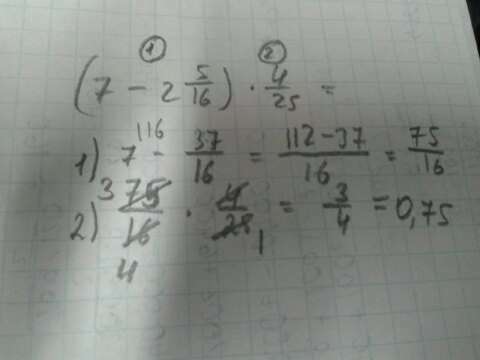 ① ②
(7 - 2 5/16) · 4/25 =
1) 7 116 - 37/16 = 112-37/16 = 75/16
2) 3 75/16 4 · 4/25 1 = 3/4 = 0,75